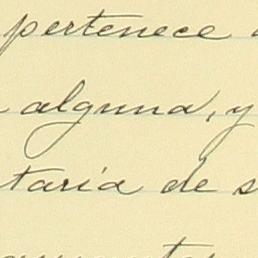 pertenece
alguna, y
taria de s